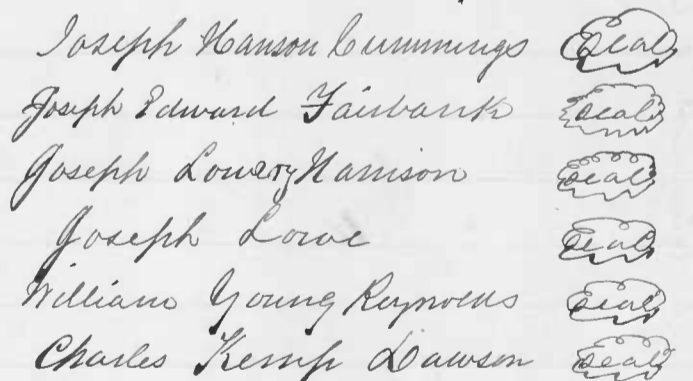 Joseph Hanson Cummings Seal
Joseph Edward Fairbank seal
Joseph Lowery Harrison seal
Joseph Lowe seal
William Young Reynolds seal
Charles Kemp Dawson seal